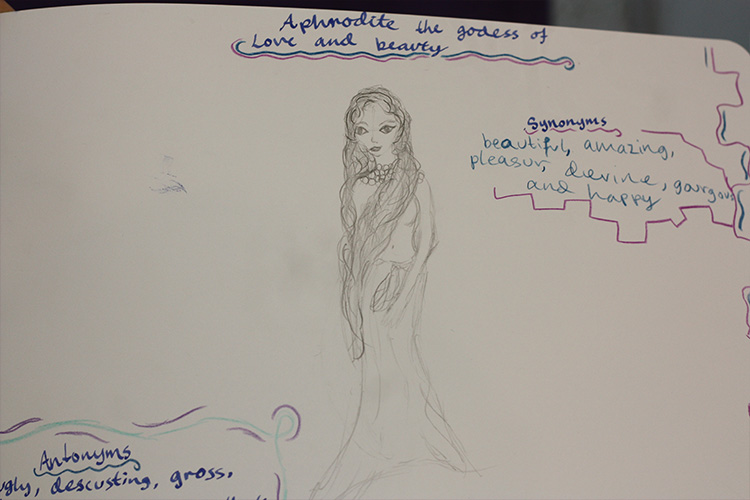 Aphrodite the godess of
Love and beauty
Synonyms
beautiful, amazing,
pleasur, devine, gorgous
and happy
Antonyms
ugly, descusting, gross,